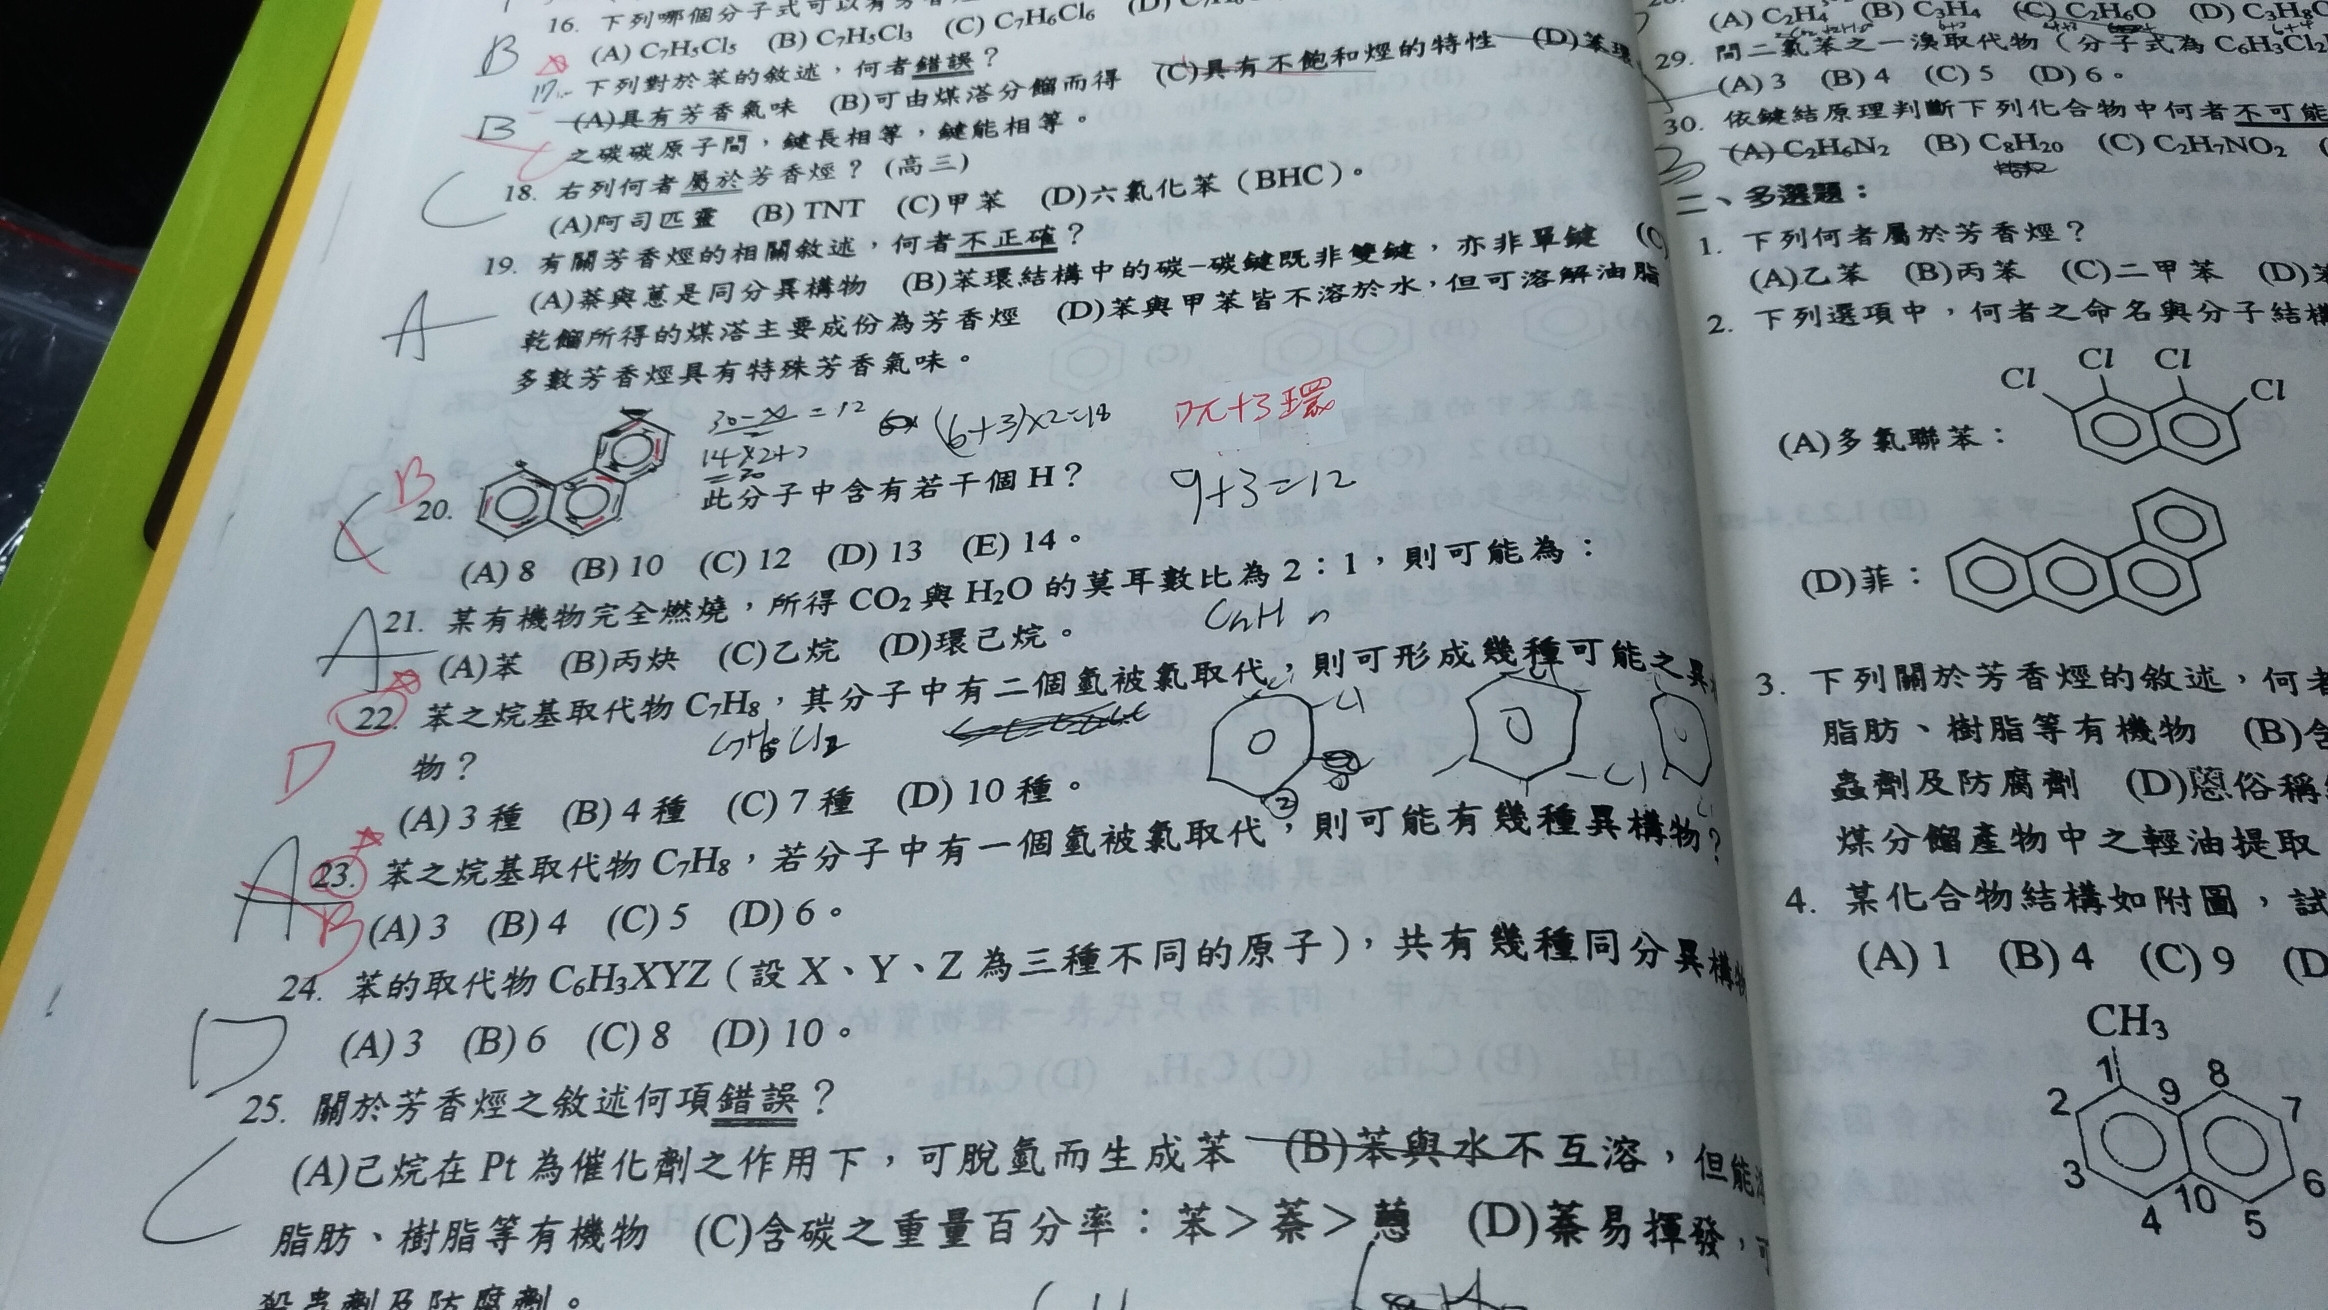 16. 下列哪個分子式可以有芳香
(A) C7H5Cl5 (B) C7H5Cl3 (C) C7H6Cl6
B
17. 下列對於苯的敘述，何者錯誤？
(A)具有芳香氣味 (B)可由煤溚分餾而得 (C)具有不飽和烴的特性 (D)苯環
之碳碳原子間，鍵長相等，鍵能相等。
B
C
18. 右列何者屬於芳香烴？(高三)
(A)阿司匹靈 (B) TNT (C)甲苯 (D)六氯化苯（BHC）。
C
19. 有關芳香烴的相關敘述，何者不正確？
(A)萘與蒽是同分異構物 (B)苯環結構中的碳–碳鍵既非雙鍵，亦非單鍵 (C)
乾餾所得的煤溚主要成份為芳香烴 (D)苯與甲苯皆不溶於水，但可溶解油脂
多數芳香烴具有特殊芳香氣味。
A
= 12
(6+3)×2=18
7π+3環
14×2+2
=30
9+3=12
B
C
20. 此分子中含有若干個 H？
(A) 8 (B) 10 (C) 12 (D) 13 (E) 14。
21. 某有機物完全燃燒，所得 CO2 與 H2O 的莫耳數比為 2：1，則可能為：
CnHn
(A)苯 (B)丙炔 (C)乙烷 (D)環己烷。
A
22. 苯之烷基取代物 C7H8，其分子中有二個氫被氯取代，則可形成幾種可能之異
物？
C7H6Cl2
Cl
Cl
(A) 3 種 (B) 4 種 (C) 7 種 (D) 10 種。
D
②
23. 苯之烷基取代物 C7H8，若分子中有一個氫被氯取代，則可能有幾種異構物？
(A) 3 (B) 4 (C) 5 (D) 6。
A
B
24. 苯的取代物 C6H3XYZ（設 X、Y、Z 為三種不同的原子），共有幾種同分異構物
(A) 3 (B) 6 (C) 8 (D) 10。
D
25. 關於芳香烴之敘述何項錯誤？
(A)己烷在 Pt 為催化劑之作用下，可脫氫而生成苯 (B)苯與水不互溶，但能
脂肪、樹脂等有機物 (C)含碳之重量百分率：苯＞萘＞蒽 (D)萘易揮發，可
殺蟲劑及防腐劑。
C
(A) C2H4 (B) C3H4 (C) C2H6O (D)
29. 間二氯苯之一溴取代物（分子式為 C6H3Cl2
(A) 3 (B) 4 (C) 5 (D) 6。
30. 依鍵結原理判斷下列化合物中何者不可能
(A) C2H6N2 (B) C8H20 (C) C2H7NO2
二、多選題：
1. 下列何者屬於芳香烴？
(A)乙苯 (B)丙苯 (C)二甲苯 (D)
2. 下列選項中，何者之命名與分子結構
Cl Cl Cl Cl
(A)多氯聯苯：
(D)菲：
3. 下列關於芳香烴的敘述，何者
脂肪、樹脂等有機物 (B)含
蟲劑及防腐劑 (D)蒽俗稱
煤分餾產物中之輕油提取
4. 某化合物結構如附圖，試
(A) 1 (B) 4 (C) 9 (D
CH3
1 8
2 9 7
3 10 6
4 5